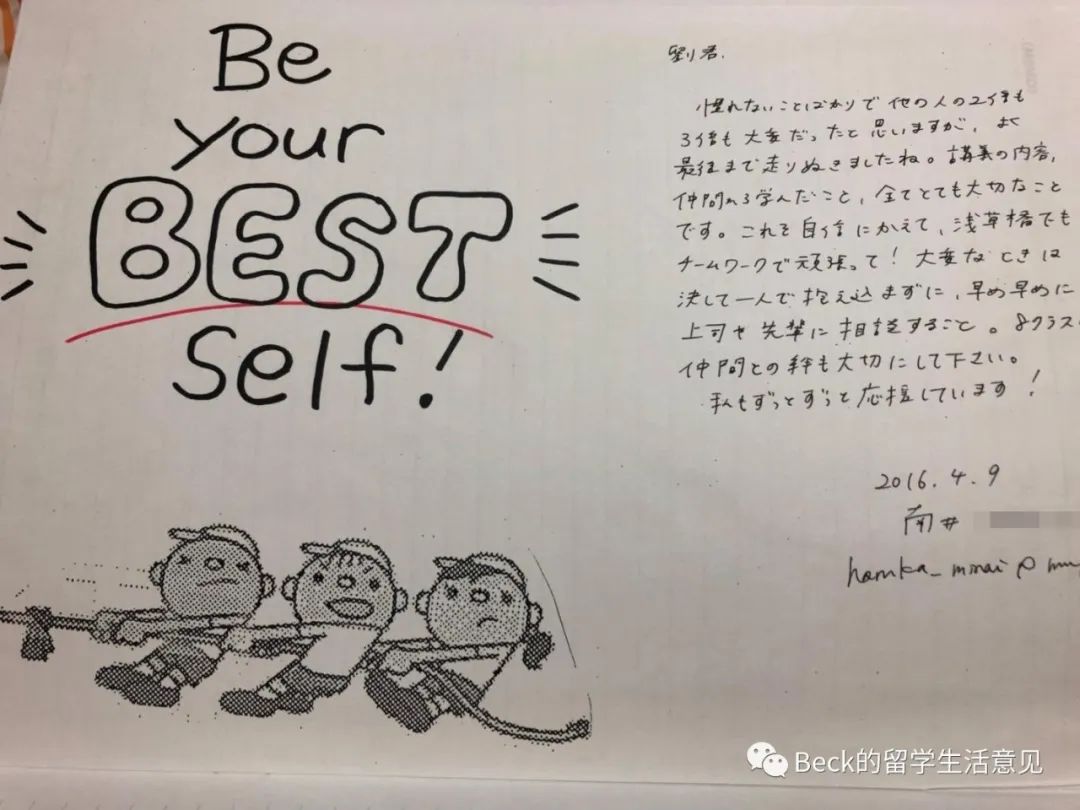 Be
your
BEST
Self!
劉君.
慣れないことばかりで他の人の2倍も
3倍も大変だったと思いますが、よく
最後まで走りぬきましたね。講義の内容,
仲間から学んだこと、全てとても大切なこと
です。これを自信にかえて、浅草橋でも
チームワークで頑張って!大変なときは
決して一人で抱え込まずに、早め早めに
上司や先輩に相談すること。8クラス、
仲間との絆も大切にして下さい。
私もずっとずっと応援しています!
2016.4.9
南井
haruka_minai@mu
Beck的留学生活意见